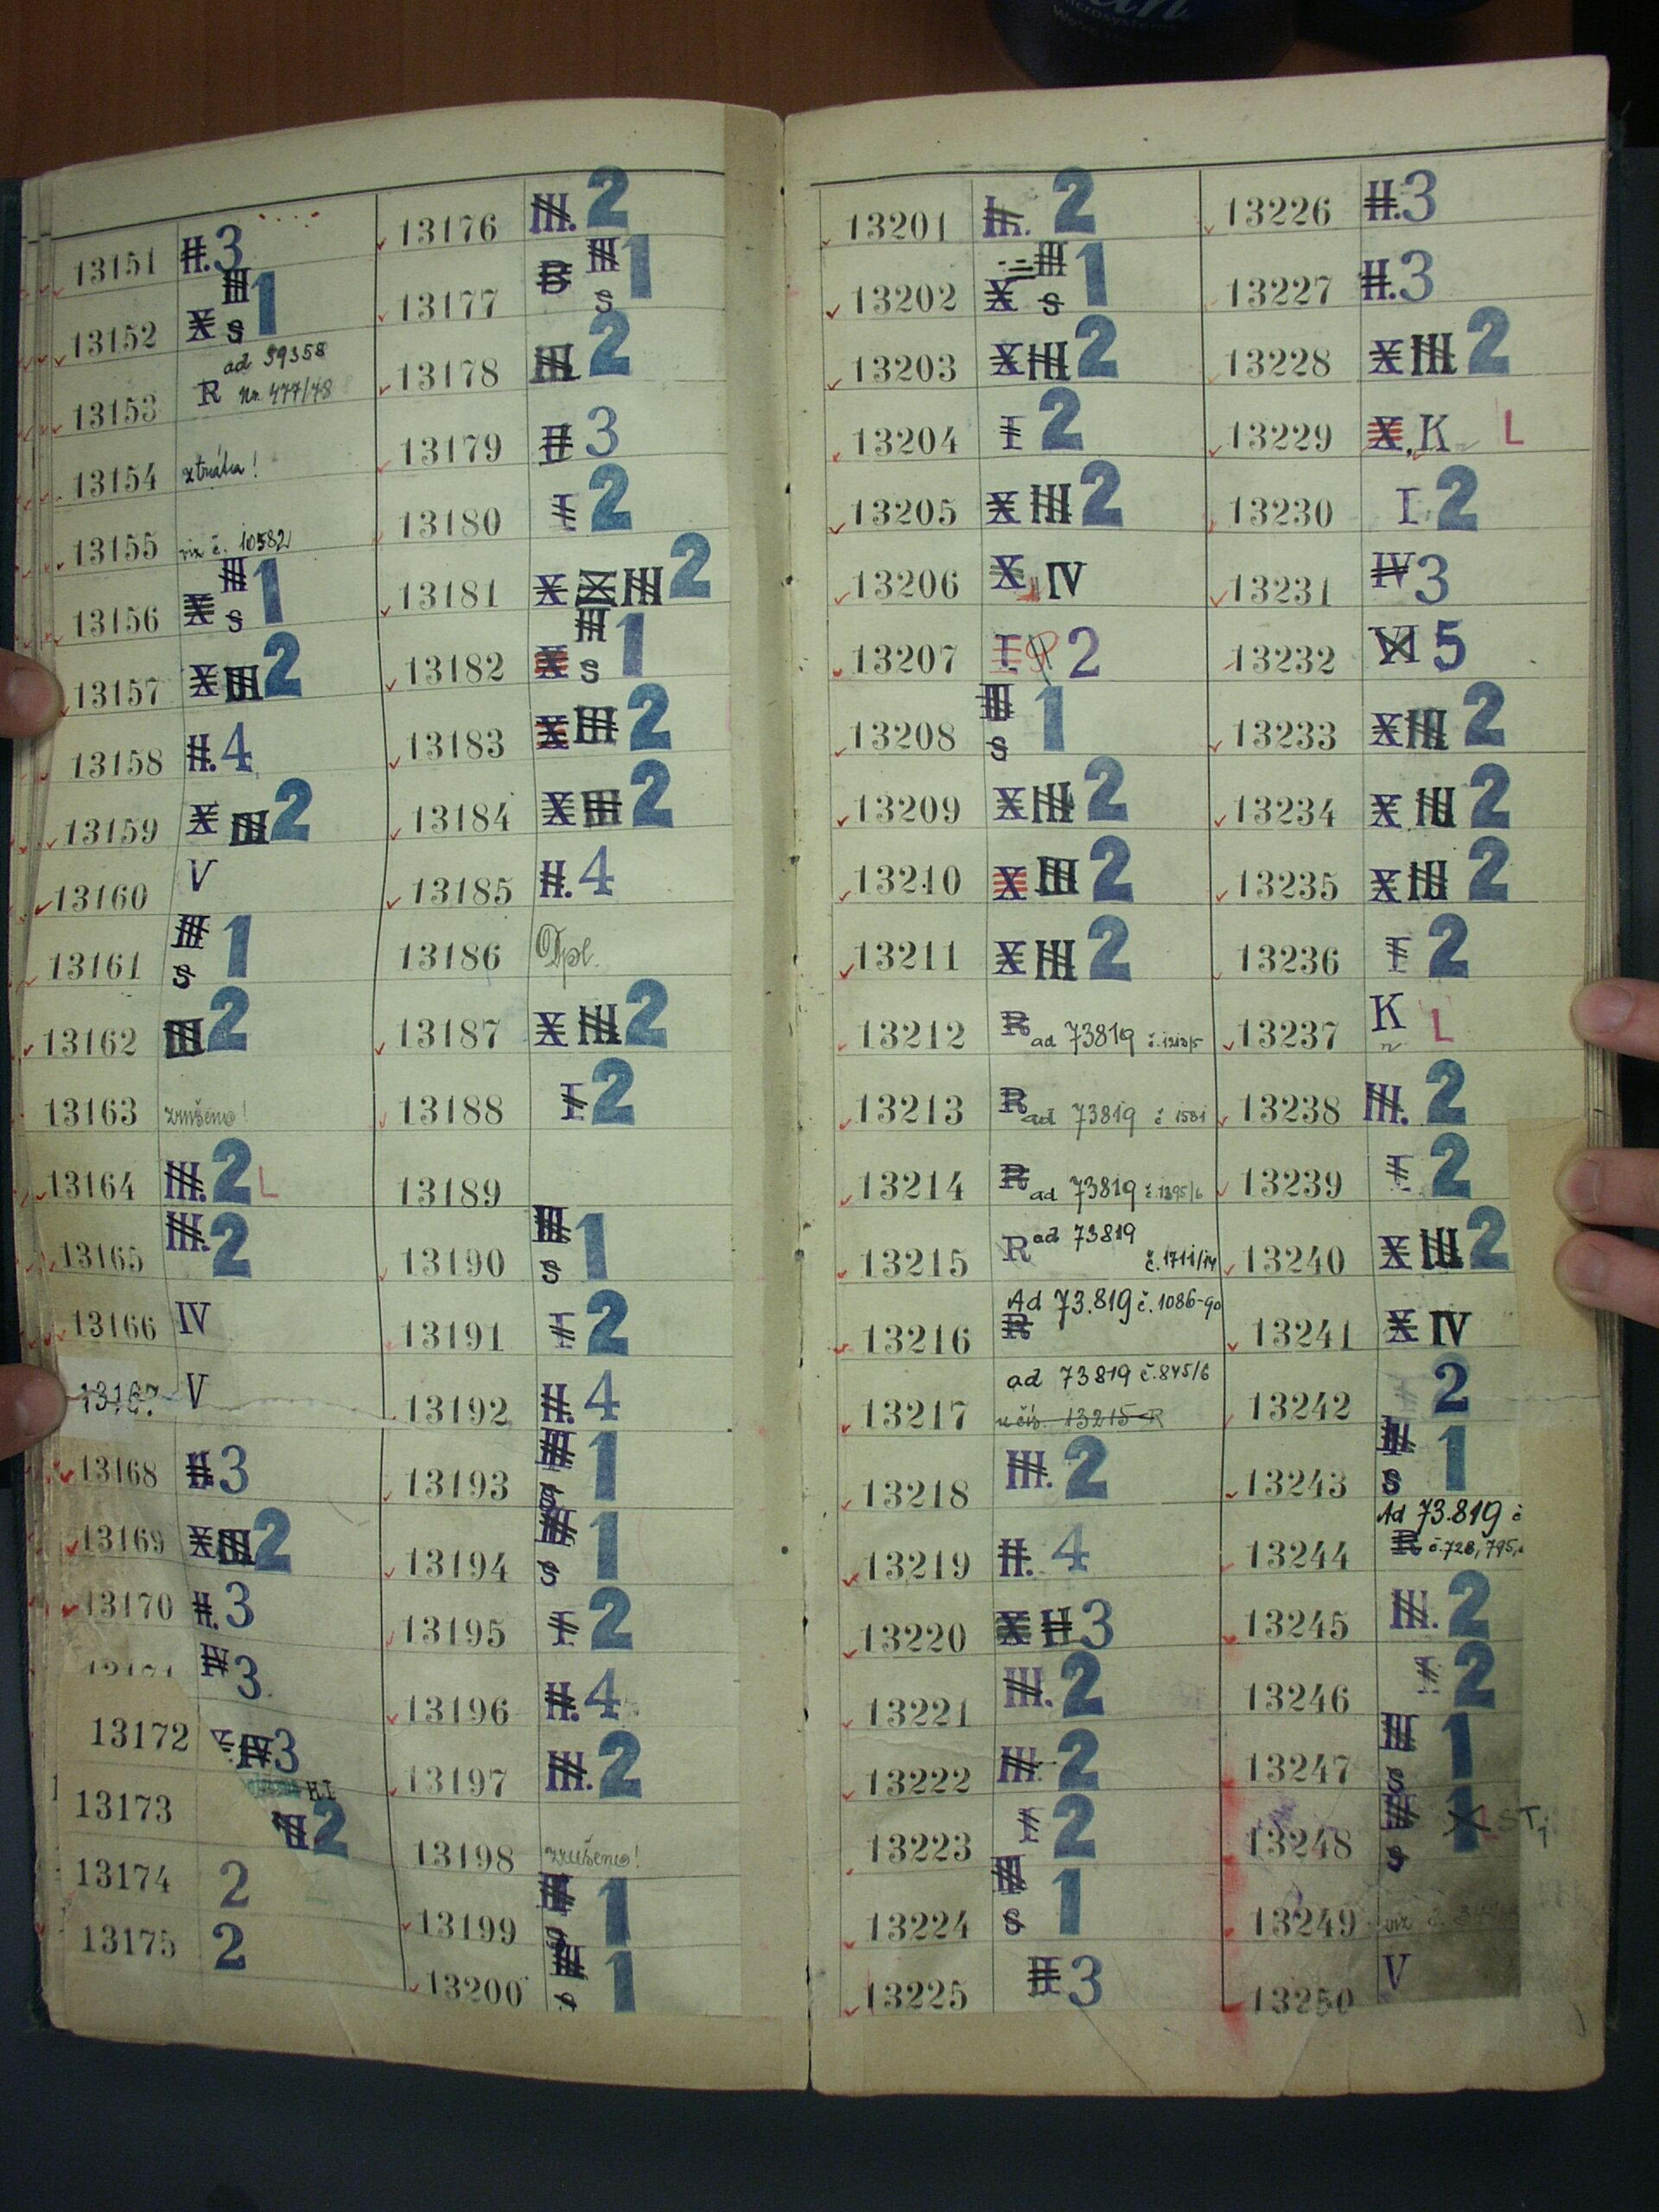 13151 II. 3
13152 X III S 1
13153 R ad 39358
Nr. 477/48
13154 ztráta!
13155 viz č. 10582
13156 X III S 1
13157 X III 2
13158 II. 4
13159 X III 2
13160 V
13161 III S 1
13162 III 2
13163 zrušeno!
13164 III. 2 L
13165 III. 2
13166 IV
13167. V
13168 II 3
13169 X III 2
13170 II. 3
13171 IV 3
13172 IV 3
13173 2
13174 2
13175 2
13176 III. 2
13177 B III S 1
13178 III 2
13179 II 3
13180 I 2
13181 X III 2
13182 X III S 1
13183 X III 2
13184 X III 2
13185 II. 4
13186 Dpl.
13187 X III 2
13188 I 2
13189
13190 III S 1
13191 I 2
13192 II. 4
13193 III S 1
13194 III S 1
13195 I 2
13196 II. 4
13197 III. 2
13198 zrušeno!
13199 III S 1
13200 III S 1
13201 2
13202 X III S 1
13203 X III 2
13204 I 2
13205 X III 2
13206 X IV
13207 I. 2
13208 III S 1
13209 X III 2
13210 X III 2
13211 X III 2
13212 R ad 73819 č. 1213/5
13213 R ad 73819 č 1581
13214 R ad 73819 č. 1295/6
13215 R ad 73819
č. 1711/14
13216 R Ad 73.819 č. 1086-90
13217 ad 73819 č. 845/6
13215 R
13218 III. 2
13219 II. 4
13220 X II 3
13221 III. 2
13222 III. 2
13223 I 2
13224 III S 1
13225 II 3
13226 II. 3
13227 II. 3
13228 X III 2
13229 X. K L
13230 I 2
13231 IV 3
13232 VI 5
13233 X III 2
13234 X III 2
13235 X III 2
13236 I 2
13237 K n L
13238 III. 2
13239 I 2
13240 X III 2
13241 X IV
13242 2
13243 III S 1
13244 Ad 73.819 č
R č. 728, 795,
13245 III. 2
13246 I 2
13247 III S 1
13248 III S 1 X
13249 viz č.
13250 V